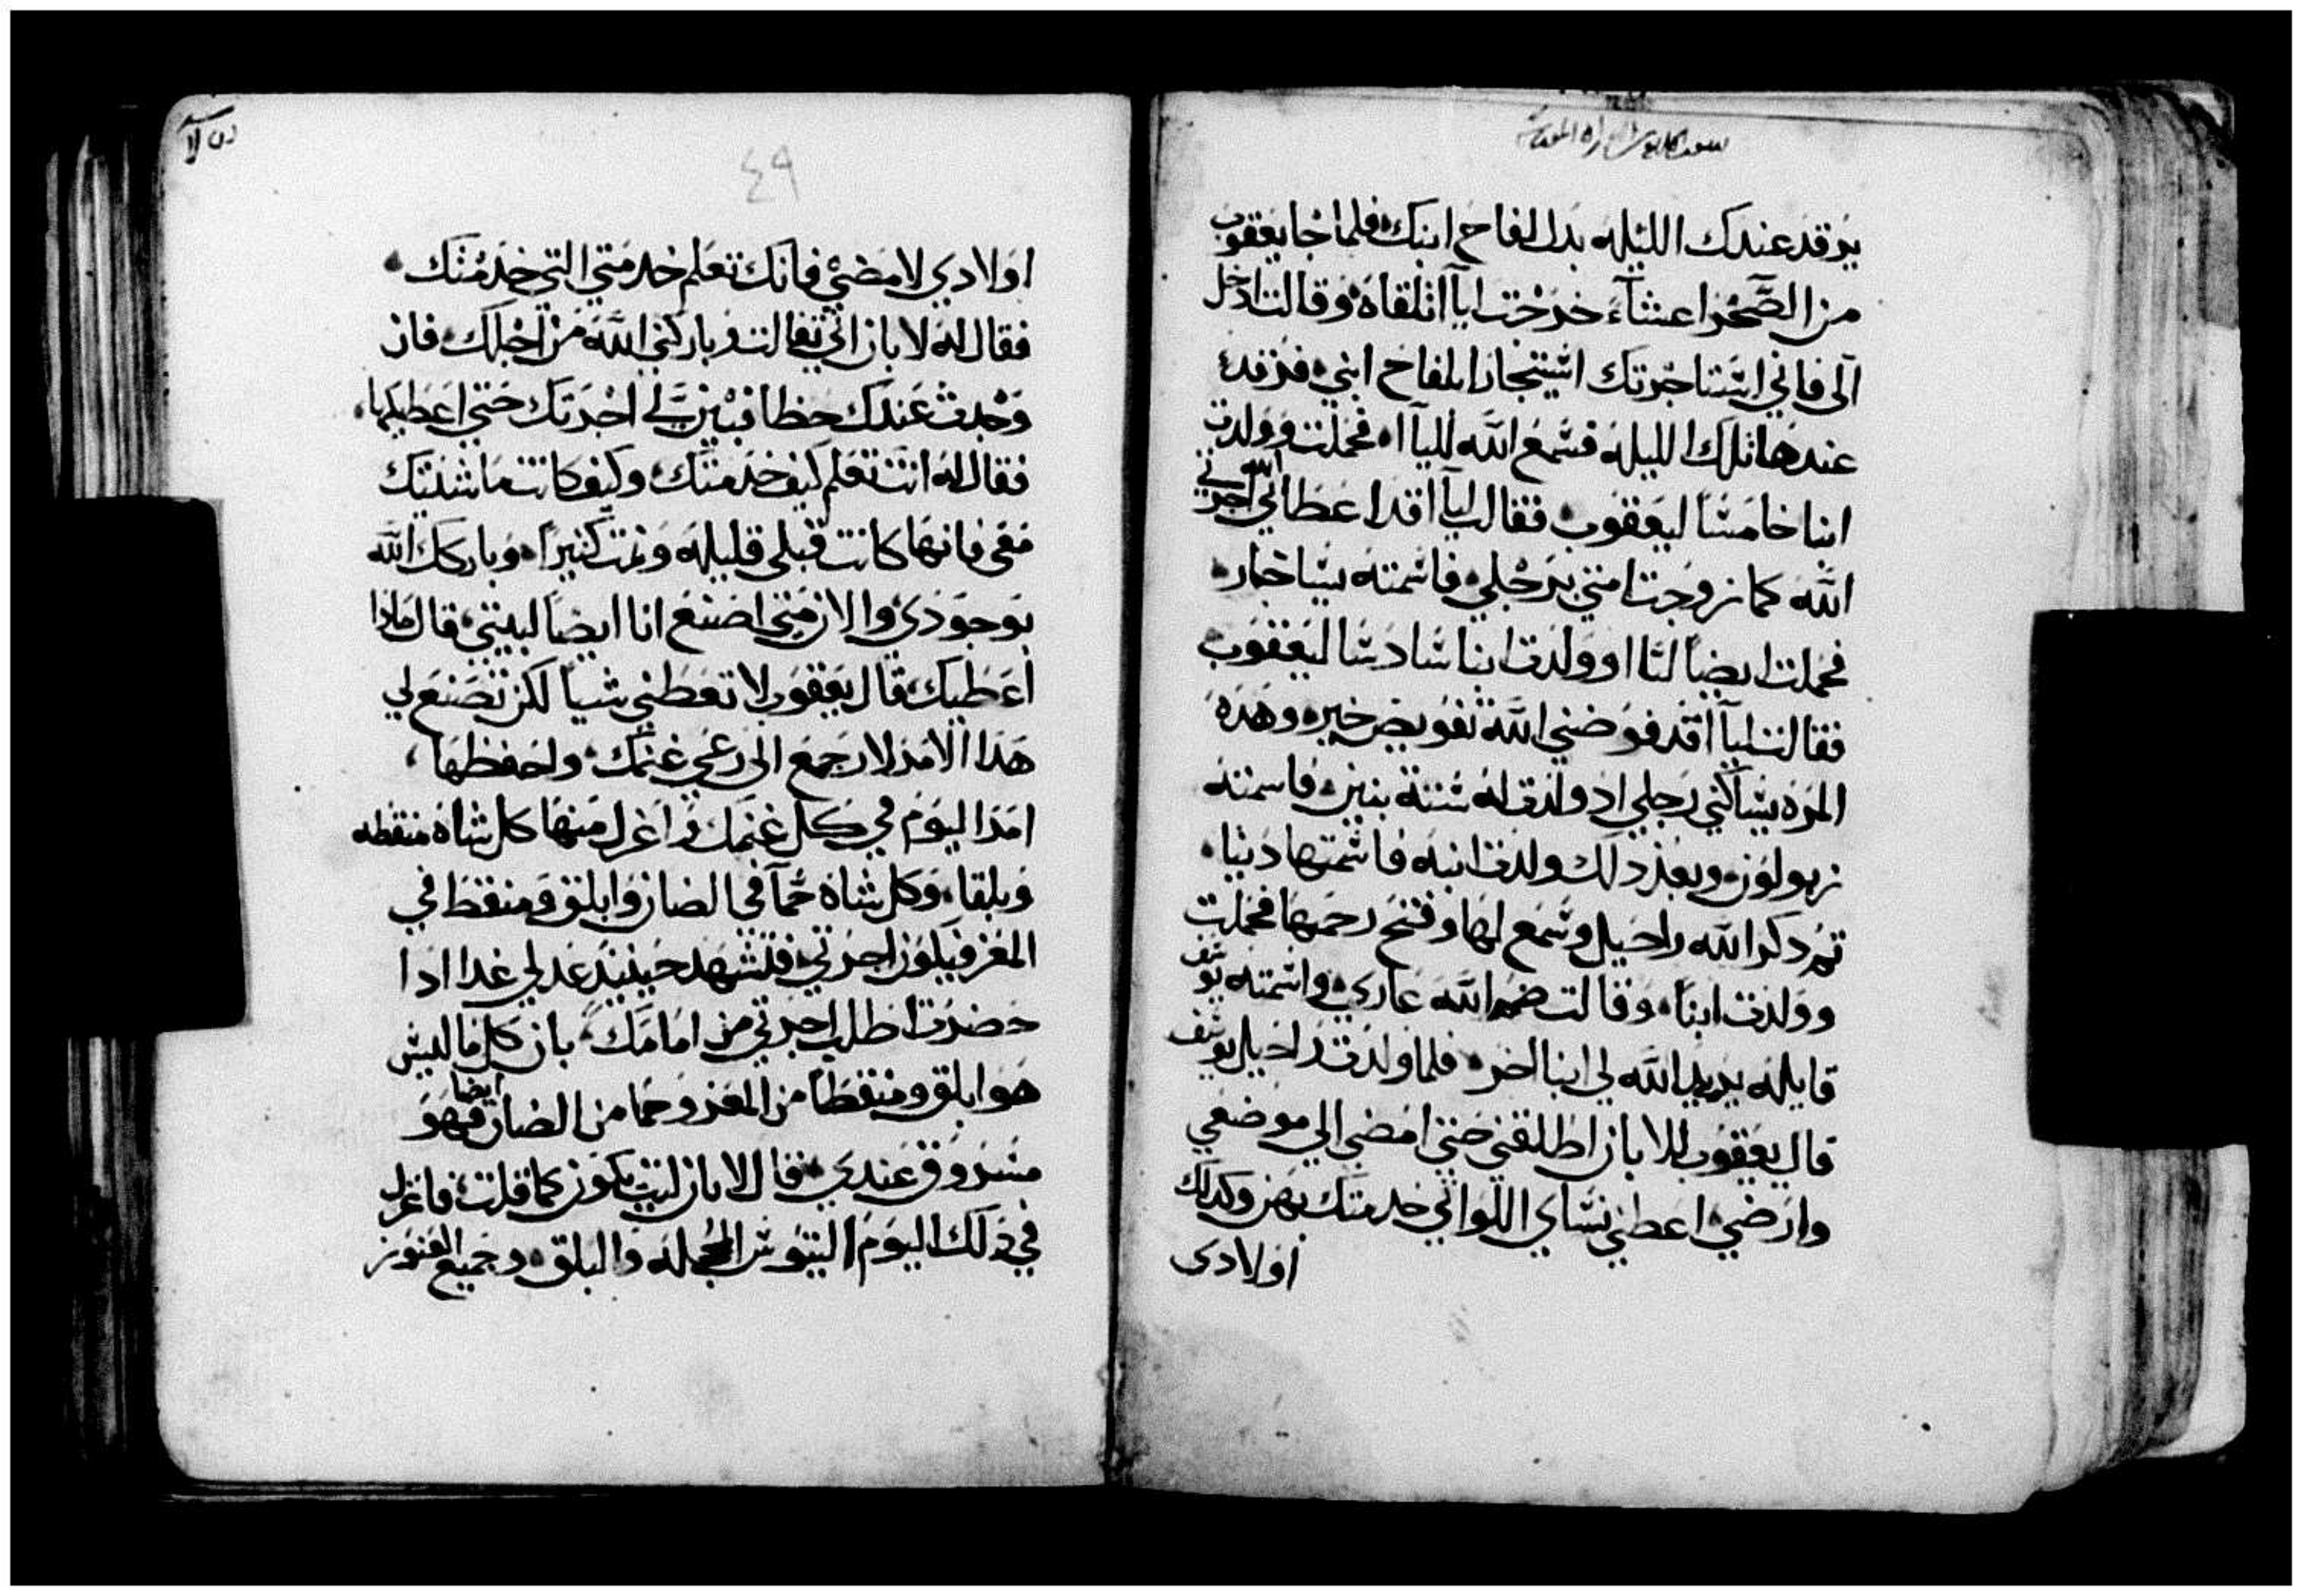 يرقد عندك الليله بدل لفاح ابنك فلما جا يعقوب
من الصحرا عشاء خرجت ليآا تلقاه وقالت ادخل
آلى فاني استاجرتك استيجارا بلفاح ابني فرقد
عندها تلك الليله فسمع الله لليآا فحملت وولدت
ابنا خامسا ليعقوب فقالت ليآا قد اعطاني الله اجرتي
الله كما زوجت امتي برجلي فاسمته يساخار
فحملت ايضا ليآا وولدت ابنا سادسا ليعقوب
فقالت ليآا قد فوضني الله تفويض خير وهده
المره يساكني رجلي اد ولدت له ستة بنين فاسمته
زبولون وبعد دلك ولدت ابنه فاسمتها دينا
تم دكر الله راحيل وسمع لها وفتح رحمها فحملت
وولدت ابنا وقالت ضم الله عاري واسمته يوسف
قايله يزيد الله لي ابنا اخر فلما ولدت راحيل يوسف
قال يعقوب للابان اطلقني حتي امضي الي موضعي
وارضي اعطني نساي اللواتي خدمتك بهن وكدلك
اولادى
٤٩
اولادي لامضي فانك تعلم خدمتي التي خدمتك
فقال له لابان اني تفالت وباركني الله من اجلك فان
وجدت عندك حظا فبين لي اجرتك حتي اعطيكها
فقال له انت تعلم كيف خدمتك وكيف كانت ماشيتك
معي فانها كانت قبلي قليله ونمت كثيرا وبارك الله
بوجودي والان متي اصنع انا ايضا لبيتي قال مادا
اعطيك قال يعقوب لا تعطني شيا لكن تصنع لي
هدا الامر لارجع الى رعي غنمك واحفظها
امر اليوم في كل غنمك واعزل منها كل شاه منقطه
وبلقا وكل شاه حمآ في الضان وابلق ومنقط في
المعز فيكون اجرتي فتشهد حينيد عدلي غدا ادا
حضرت اطلب اجرتي من امامك بان كل ما ليس
هو ابلق ومنقطا من المعز وحما من الضان ايضا فهو
مسروق عندي قال لابان ليت يكون كما قلت فاعزل
في دلك اليوم التيوش المحجله والبلق وجميع العنوز